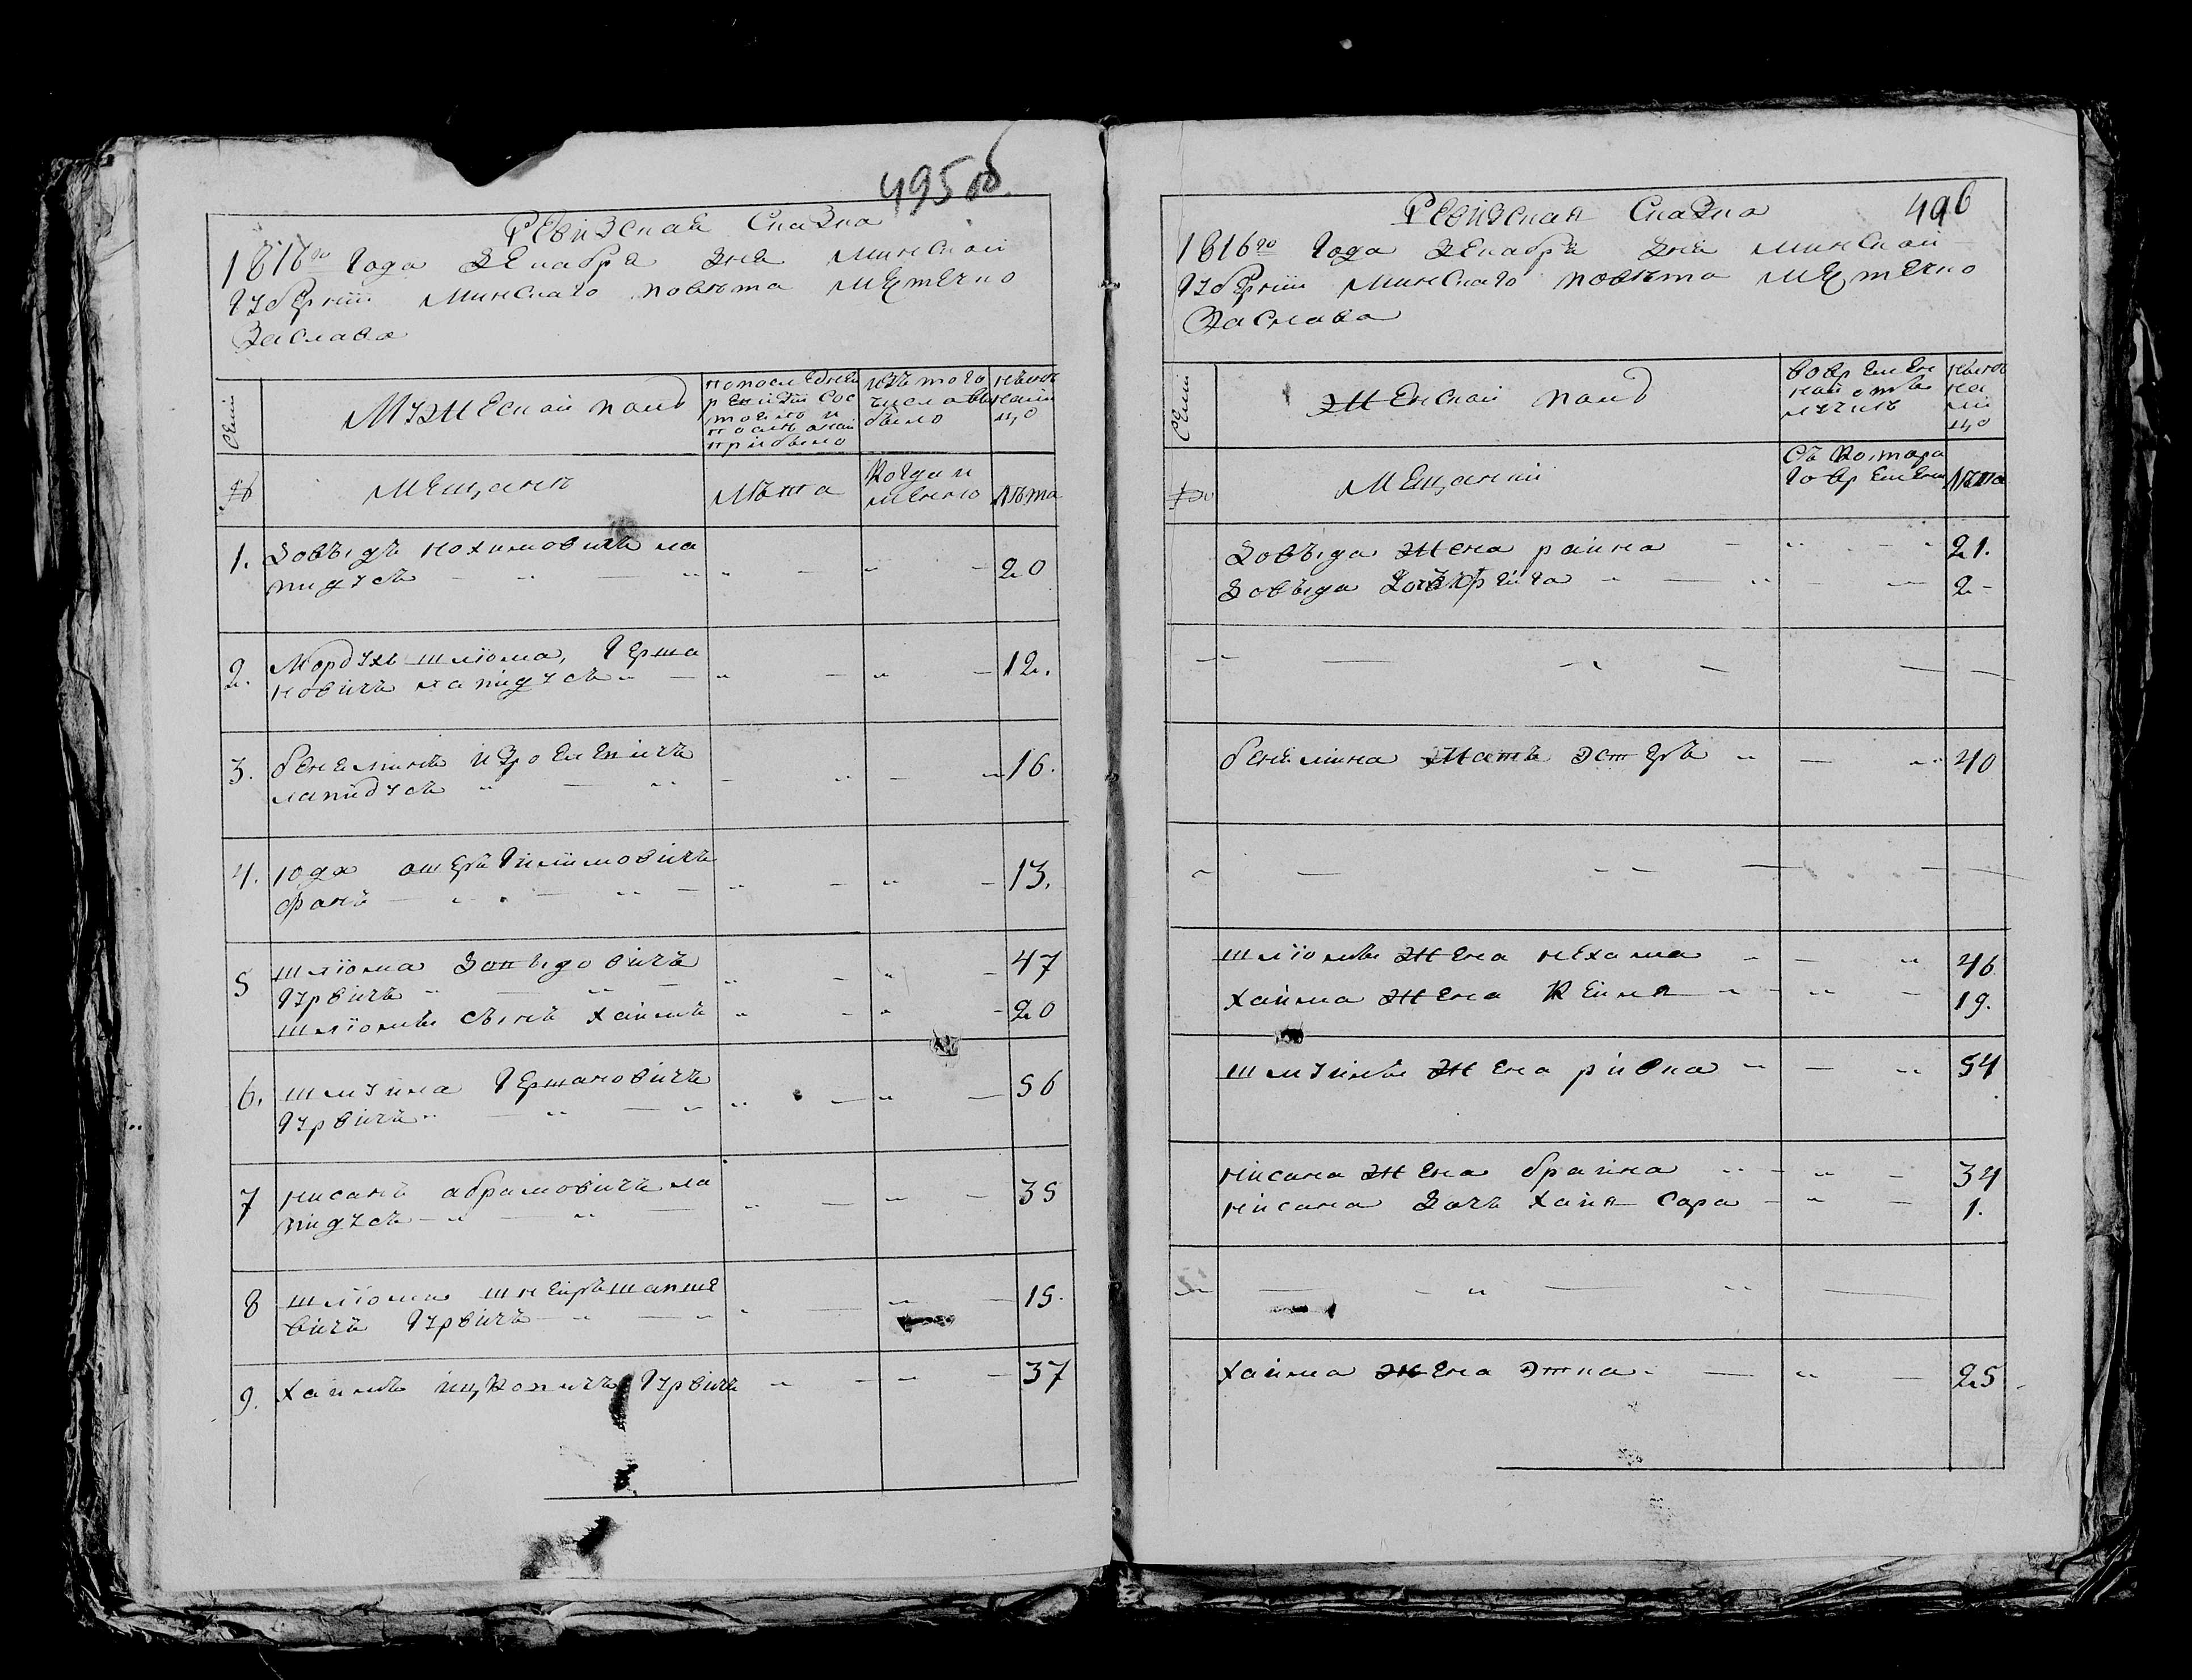 495 об
Ревизская Сказка
1816го Года декабря дня Минской
Губернии Минского повета местечко
Заслава
Семьи
Мужеской полъ
по последней
ревизии сос
тояло и
после оной
прибыло
изъ того
числа вы
было
ныне
на ли
цо
№
Мещане
Лета
Когда и
менно
лета
1. Довыдъ нохимовичъ ла
пидусъ 20
2. Мордухъ шліома, Герша
новичъ лапидусъ 12.
3. бенеминъ изроелевичъ
лапидусъ 16.
4. юда ошеръ Гилимовичъ
фанъ 13.
5 шліома Довыдовичъ 47
Гурвичъ
шліомы сынъ хаимъ 20
6. шлуима Гершановичъ 56
Гурвичъ
7 нисанъ абрамовичъ ла 35
пидусъ
8 шліома шнеиръ 15.
вичъ Гурвичъ
9. хаимъ ицковичъ Гурвичъ 37
Ревизская Сказка
496
1816го Года декабря дня Минской
Губернии Минского повета местечко
Заслава
Семьи
Женской полъ
во времен
ной отлу
чке
ныне
на
ли
цо
№
Мещанки
Съ которо
го времени
лета
Довыда жена раина 21.
Довыда дочь фреида 2
бенемина мать эстеръ 40
шліомы жена нехама 46
хаима жена Кеиля 19.
шлуимы жена ривка 54
нисана жена браина 34
нисана дочъ хаия сара 1.
хаима жена этка 25